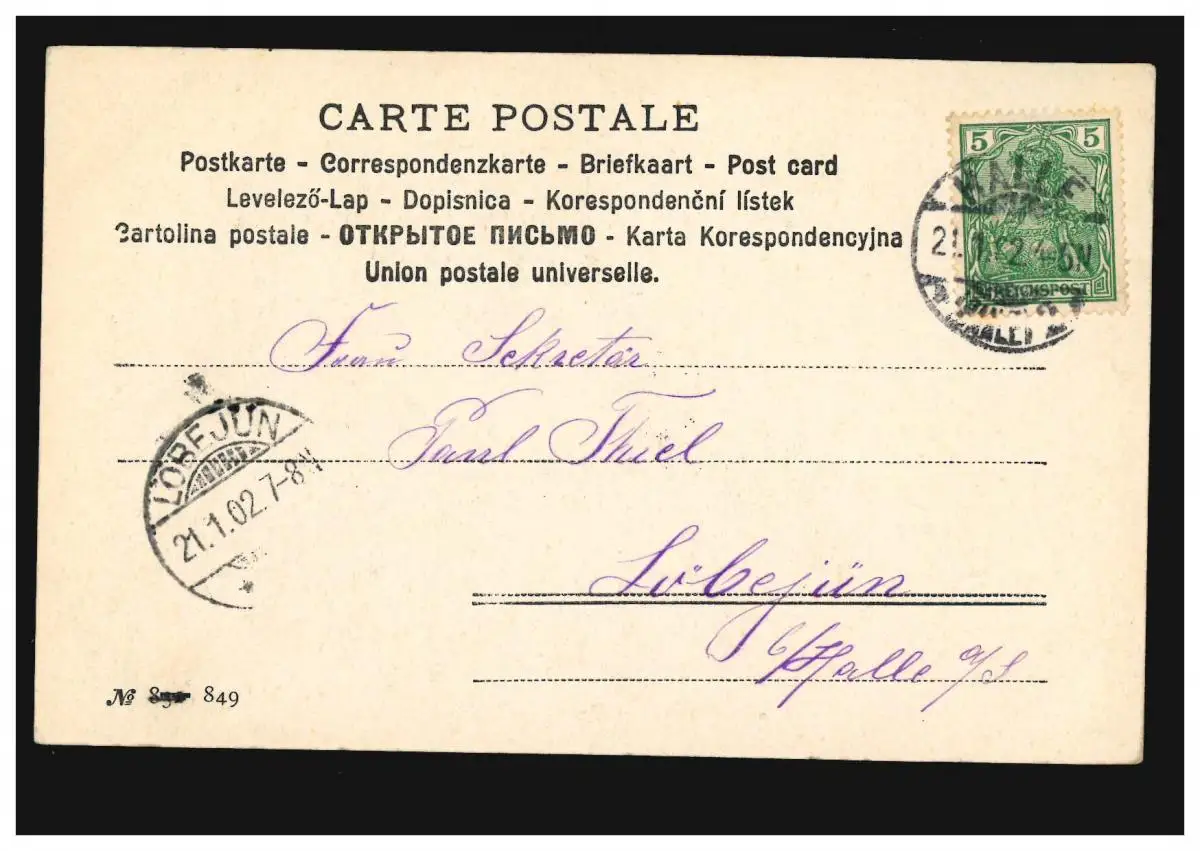 CARTE POSTALE
Postkarte - Correspondenzkarte - Briefkaart - Post card
Levelező-Lap - Dopisnica - Korespondenční lístek
Cartolina postale - ОТКРЫТОЕ ПИСЬМО - Karta Korespondencyjna
Union postale universelle.
5 5
REICHSPOST
HALLE
21.1.02
(SAALE)
Frau Sekretär
Paul Thiel
Löbejün
b/Halle a/S
LÖBEJÜN
21.1.02.7-8N
№ 849